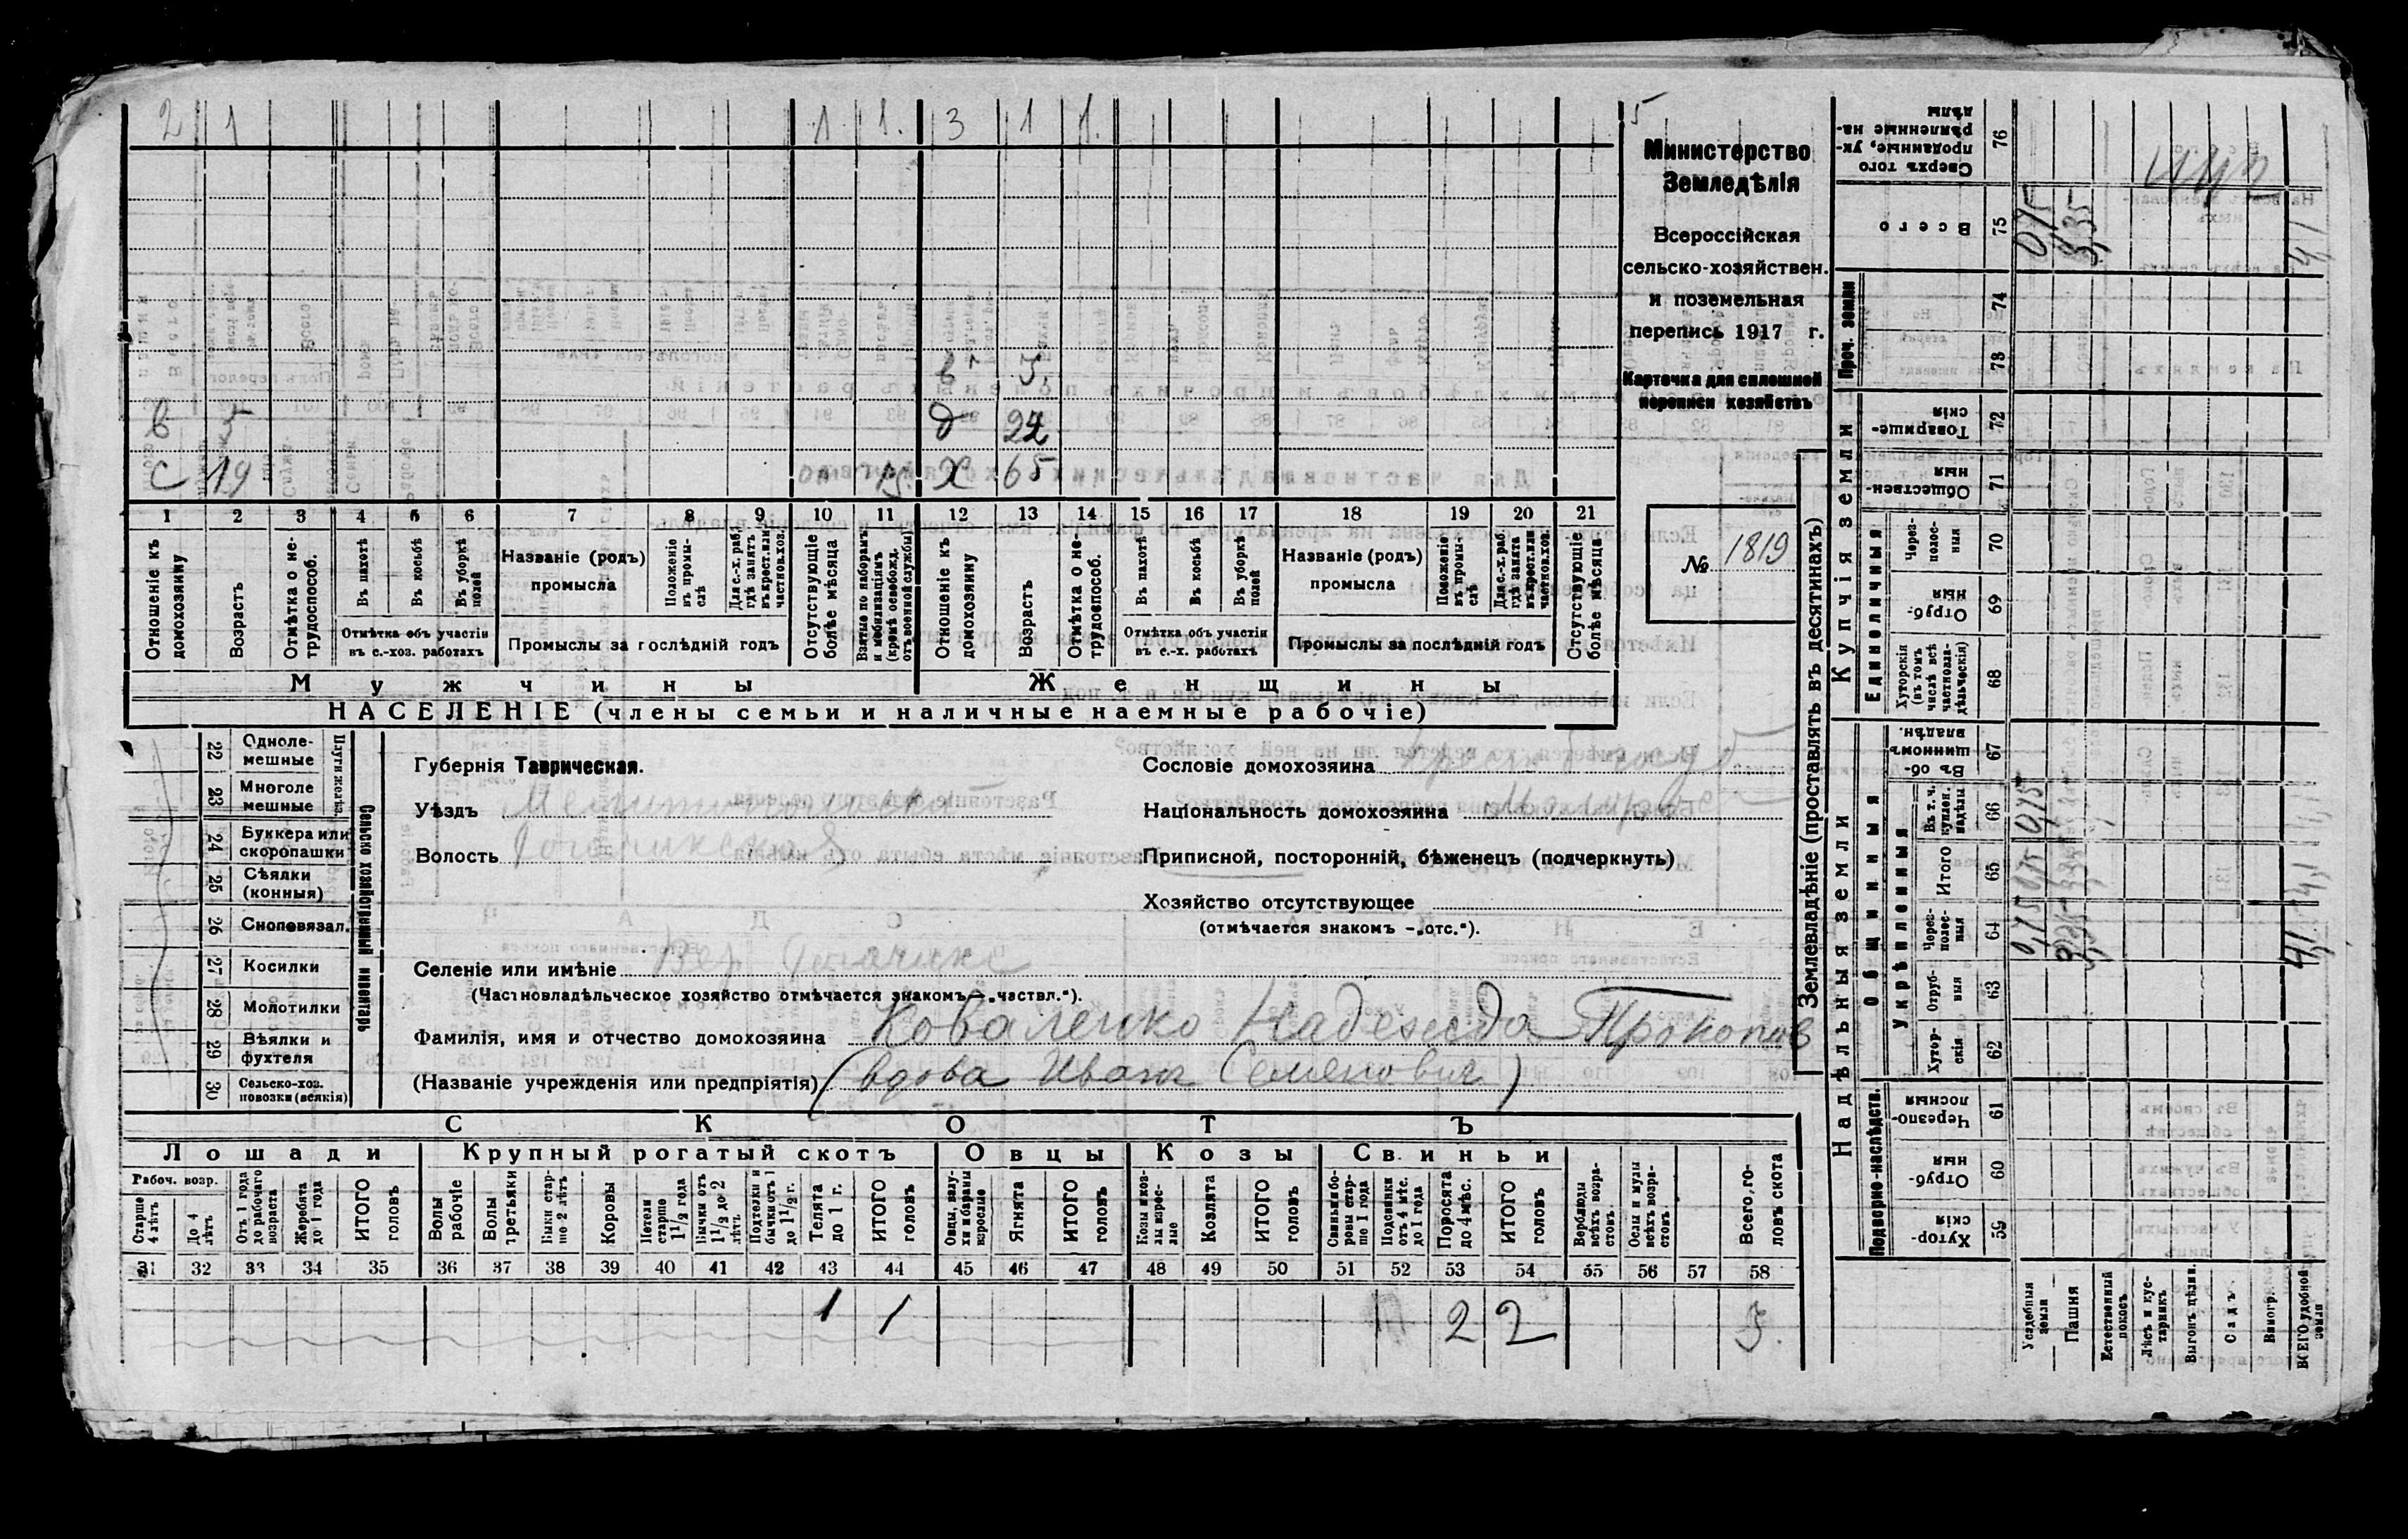 2 1 1 1. 3 1 1. 5
в 3
в 5 д 22
с 19 1 Х 65
1 2 3 4 5 6 7 8 9 10 11 12 13 14 15 16 17 18 19 20 21
Отношеніе къ домохозяину
Возрастъ
Отмѣтка о не-трудоспособ.
Въ пахотѣ
Въ косьбѣ
Въ уборкѣ полей
Отмѣтка объ участіи
въ с.-хоз. работахъ
Названіе (родъ)
промысла
Положеніе въ промы-слѣ
Для с.-х. раб. гдѣ занятъ въ крест. или частнов. хоз.
Промыслы за послѣдній годъ
Отсутствующіе болѣе мѣсяца
Взятые по наборамъ и мобилизаціямъ (кромѣ освобожд. отъ военной службы)
Отношеніе къ домохозяину
Возрастъ
Отмѣтка о не-трудоспособ.
Въ пахотѣ
Въ косьбѣ
Въ уборкѣ полей
Отмѣтка объ участіи
въ с.-х. работахъ
Названіе (родъ)
промысла
Положеніе въ промы-слѣ
Для с.-х. раб. гдѣ занята въ крест. или частнов. хоз.
Промыслы за послѣдній годъ
Отсутствующіе болѣе мѣсяца
Мужчины Женщины
НАСЕЛЕНІЕ (члены семьи и наличные наемные рабочіе)
Министерство
Земледѣлія
Всероссійская
сельско-хозяйствен.
и поземельная
перепись 1917 г.
Карточка для сплошной
переписи хозяйствъ
№ 1819
22 Однолемешные
23 Многолемешные
Плуги желѣз.
24 Буккера или скоропашки
25 Сѣялки (конныя)
26 Сноповязал.
27 Косилки
28 Молотилки
29 Вѣялки и фухтеля
30 Сельско-хоз. повозки (всякія)
Сельско хозяйственный инвентарь
Губернія Таврическая.
Уѣздъ Мелитопольскій
Волость
Сословіе домохозяина
Національность домохозяина
Приписной, посторонній, бѣженецъ (подчеркнуть)
Хозяйство отсутствующее
(отмѣчается знакомъ -„отс.“).
Селеніе или имѣніе
(Частновладѣльческое хозяйство отмѣчается знакомъ—„частвл.“).
Фамилія, имя и отчество домохозяина Коваленко Надежда Прокопов
(Названіе учрежденія или предпріятія) (вдова Иван Семенович)
СКОТЪ
Лошади Крупный рогатый скотъ Овцы Козы Свиньи
Рабоч. возр.
Старше 4 лѣтъ
До 4 лѣтъ
Отъ 1 года до рабочаго возраста
Жеребята до 1 года
ИТОГО головъ
Волы рабочіе
Волы третьяки
Быки стар-ше 2 лѣтъ
Коровы
Нетели старше 1 1/2 года
Бычки отъ 1 1/2 до 2 лѣтъ.
Подтелки и бычки отъ 1 до 1 1/2 г.
Телята до 1 г.
ИТОГО головъ
Овцы, валу-хи и бараны взрослые
Ягнята
ИТОГО головъ
Козы и коз-лы взрос-лые
Козлята
ИТОГО головъ
Свиньи бо-ровы стар-ше 1 года
Подсвинки отъ 4 мѣс. до 1 года
Поросята до 4 мѣс.
ИТОГО головъ
Верблюды всѣхъ возра-стовъ.
Ослы и мулы всѣхъ возра-стовъ.
Всего, го-ловъ скота
31 32 33 34 35 36 37 38 39 40 41 42 43 44 45 46 47 48 49 50 51 52 53 54 55 56 57 58
1 1 2 2 3.
Землевладѣніе (проставлять въ десятинахъ)
Надѣльныя земли Купчія земли Проч. земли
Подворно-наслѣдств.
Общинныя
Укрѣпленныя
Единоличныя
Хутор-скія 59
Отруб-ныя 60
Черезпо-лосныя 61
Хутор-скія 62
Отруб-ныя 63
Через-полос-ныя 64
Итого 65
Въ т. ч. куплен. надѣлы 66
Въ об-щинномъ владѣн. 67
Хуторскія (въ томъ числѣ всѣ частновла-дѣльческія) 68
Отруб-ныя 69
Через-полос-ныя 70
Обществен-ныя 71
Товарище-скія 72
73
74
Всего 75
Сверхъ того проданные, ук-рѣпленные на-дѣлы 76
Усадебныя земли
0,75 0,75 0,75 0,75
Пашня
3,35 3,35 3,35
Естественный покосъ
Лѣсъ и кус-тарникъ
Выгонъ цѣлин.
Садъ.
Виногр.
ВСЕГО удобной земли
4,1 4,1 4,1